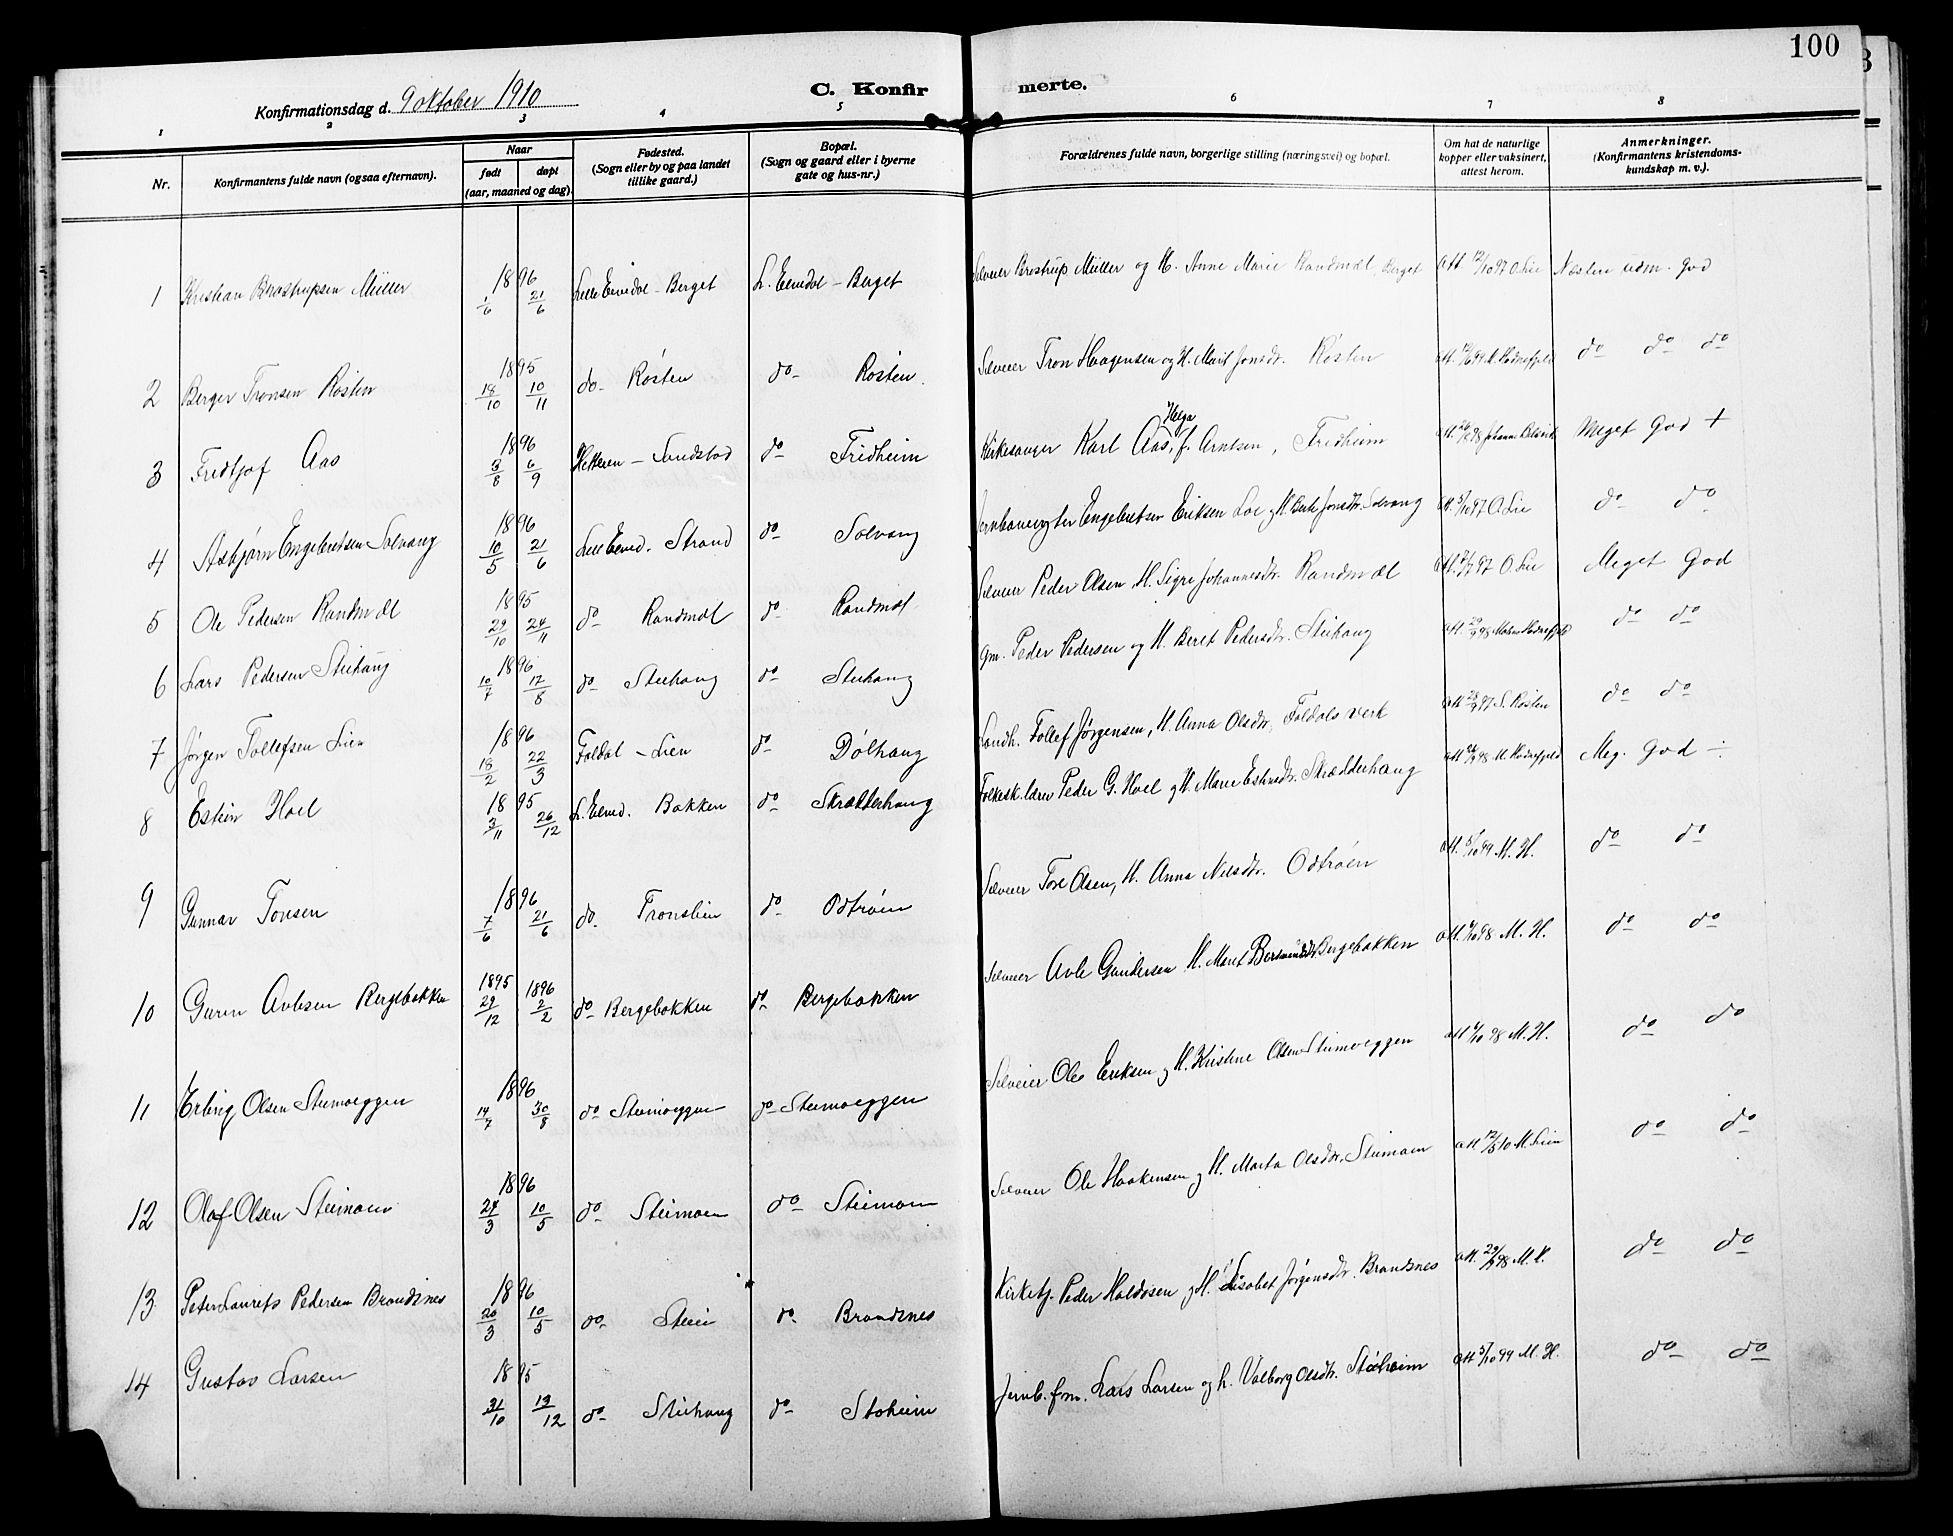 100
Konfirmationsdag d. 9 oktober 1910
C. Konfir merte.
1 2 3 4 5 6 7 8
Nr. Konfirmantens fulde navn (ogsaa efternavn). Naar født døpt (aar, maaned og dag). Fødested. (Sogn eller by og paa landet tillike gaard.) Bopæl. (Sogn og gaard eller i byerne gate og hus-nr.) Forældrenes fulde navn, borgerlige stilling (næringsvei) og bopæl. Om hat de naturlige kopper eller vaksinert, attest herom. Anmerkninger. (Konfirmantens kristendoms-kundskap m. v.).
1 Kristian Brostrupsen Müller 1896 1/6 21/6 Lille Elvedal - Berget L. Elvedal - Berget Selveier Brostrup Müller og H. Anne Marie Randmæl, Berget att 12/10 97 O. Lie Næsten udm. god
2 Berger Tronsen Røsten 1895 18/10 10/11 do - Røsten do - Røsten Selveier Tron Haagensen og H. Marit Jonsdr. Røsten do do do
3 Fredtjof Aas 1896 3/8 6/9 - Sandstad do Fridheim Kirkesanger Karl Aas, Helga f. Arntsen, Fredheim Meget god +
4 Asbjørn Engebretsen Solvang 1896 10/5 21/6 Lille Elved. Strand do Solvang Jernbanevogter Engebretsen Eriksen Loe og H. Berte Jonsdr. Solvang att. 5/10 97 O. Lie do do
5 Ole Pedersen Randmæl 1895 29/10 24/11 do Randmæl do Randmæl Selveier Peder Olsen H. Sigri Johannesdr. Randmæl O. Lie Meget god
6 Lars Pedersen Steihaug 1896 10/7 17/8 do Steihaug do Steihaug gm. Peder Pedersen og H. Beret Pedersdr. Steihaug do do
7 Jørgen Tollefsen Lien 1896 18/2 22/3 Foldal - Lien do Dølhaug Landh. Tollef Jørgensen, H. Anna Olsdr. Foldals verk S. Røsten do do
8 Estein Hoel 1895 3/11 26/12 L. Elved. Bakken do Skrædderhaug Folkesk.lærer Peder G. Hoel og H. Marie Estensdr. Skrædderhaug Meg. god ÷
9 Gunnar Toresen 1896 7/6 21/6 do. Tronslien do Odtrøen Selveier Tore Olsen, H. Anna Nilsdr. Odtrøen att. 5/10 99 M. H. do do
10 Avlesen Bergebakken 1895 29/12 1896 2/2 do Bergebakken do Bergebakken Selveier Avle Gundersen H. Marit Bersvendsdr. Bergebakken M. H. do do
11 Erling Olsen Steimoeggen 1896 14/7 30/8 do Steimoeggen do Steimoeggen Selveier Ole Eriksen og H. Kristine Olsen Steimoeggen M. H. do do
12 Olaf Olsen Steimoen 1896 29/3 10/5 do Steimoen do Steimoen Selveier Ole Haakensen og H. Marta Olsdr. Steimoen att 12/5 10 M. Lien do do
13 Peter Laurets Pedersen Brandsnes 1896 20/3 10/5 do Steie do Brandsnes Kirketj. Peder Haldosen og H. Elisabet Jørgensdr. Brandsnes do do
14 Gustav Larsen 1895 31/10 13/12 do Steihaug do Stoheim Jernb. fm. Lars Larsen og h. Valborg Olsdr. Stoheim att 5/10 99 M. H. do do